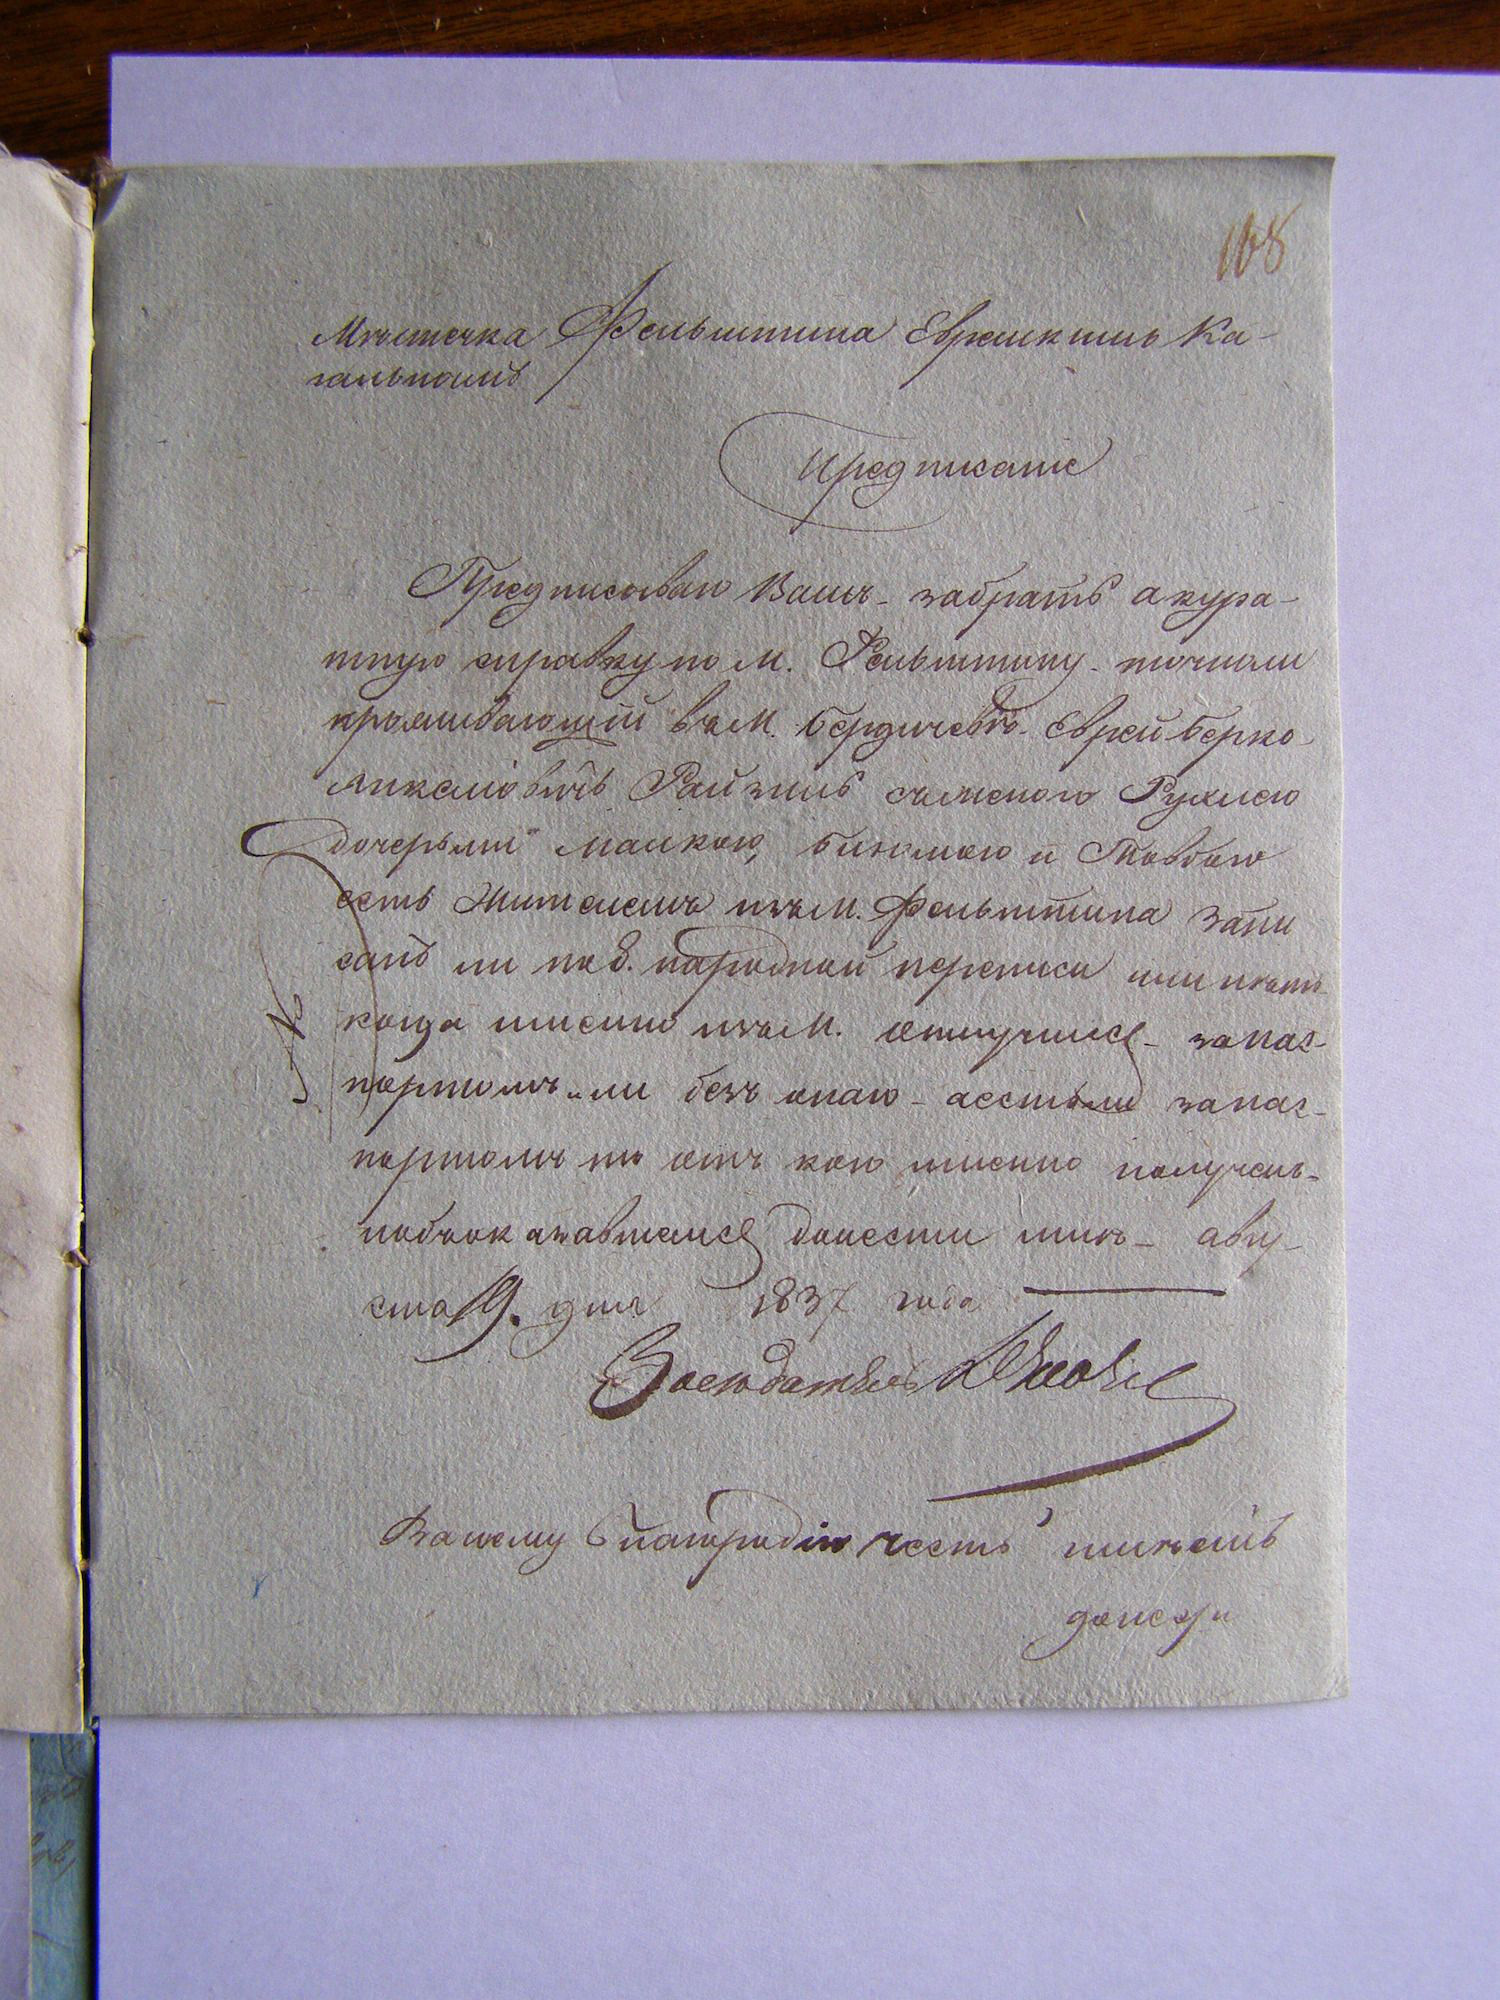 168
Мѣстечка Фельштина Еврейскимъ Ка-
гальнымъ
Предписаніе
Предписоваю Вамъ забрать акура-
тную справку по М. Фельштину точноли
проживающій въ М. Бердичевѣ Еврей Берко
Райзисъ съ женою Рухлею
дочерьми Малкою, и Товбою
есть Жителемъ изъ М. Фельштина запи
санъ ли по 8. народной переписи или нѣтъ
когда именно изъ М. отлучился запас-
портомъ или безъ онаго а если запас-
портомъ то отъ кого именно полученъ
и обо оказавшемся донести мнѣ авгу-
ста 19. дня 1837 года
Засѣдатель
Вашему благородію честь имѣемъ
донести